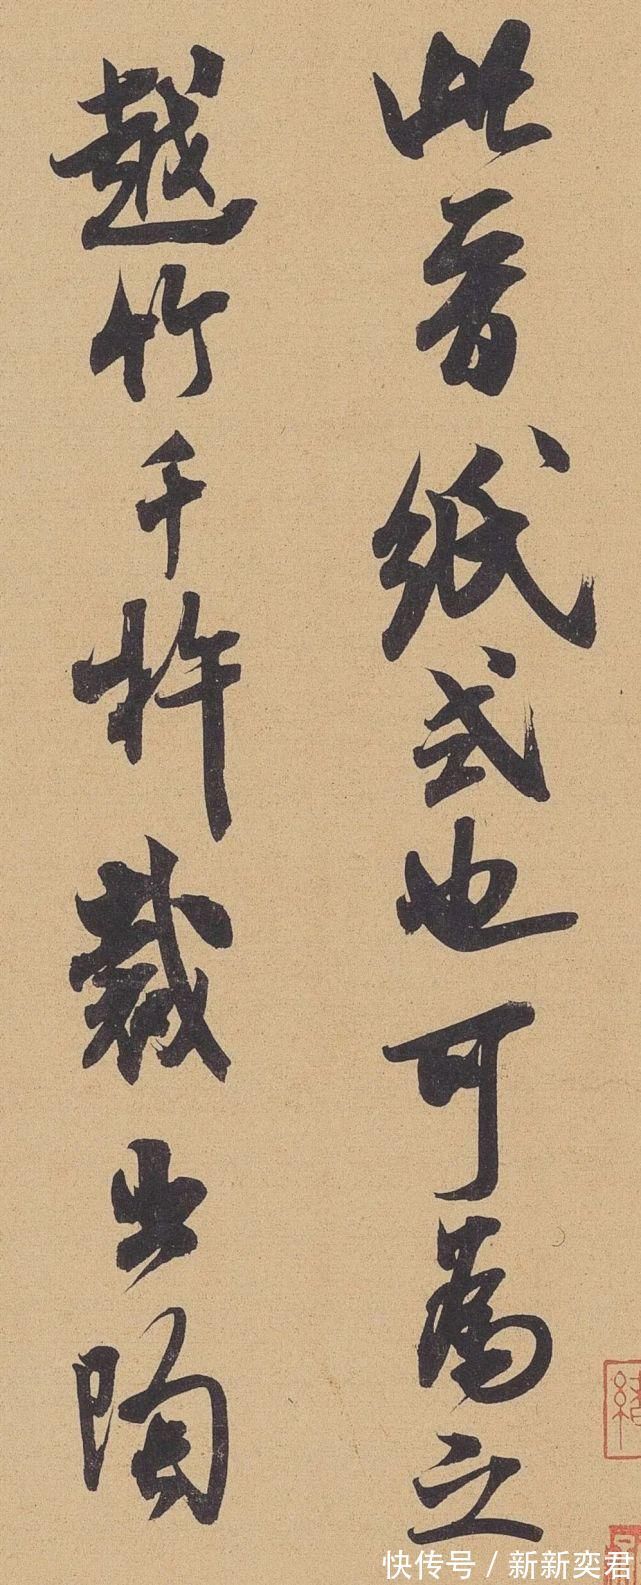 此晉紙式也可為之
越竹千杵裁出陶
快传号 / 新新奕君